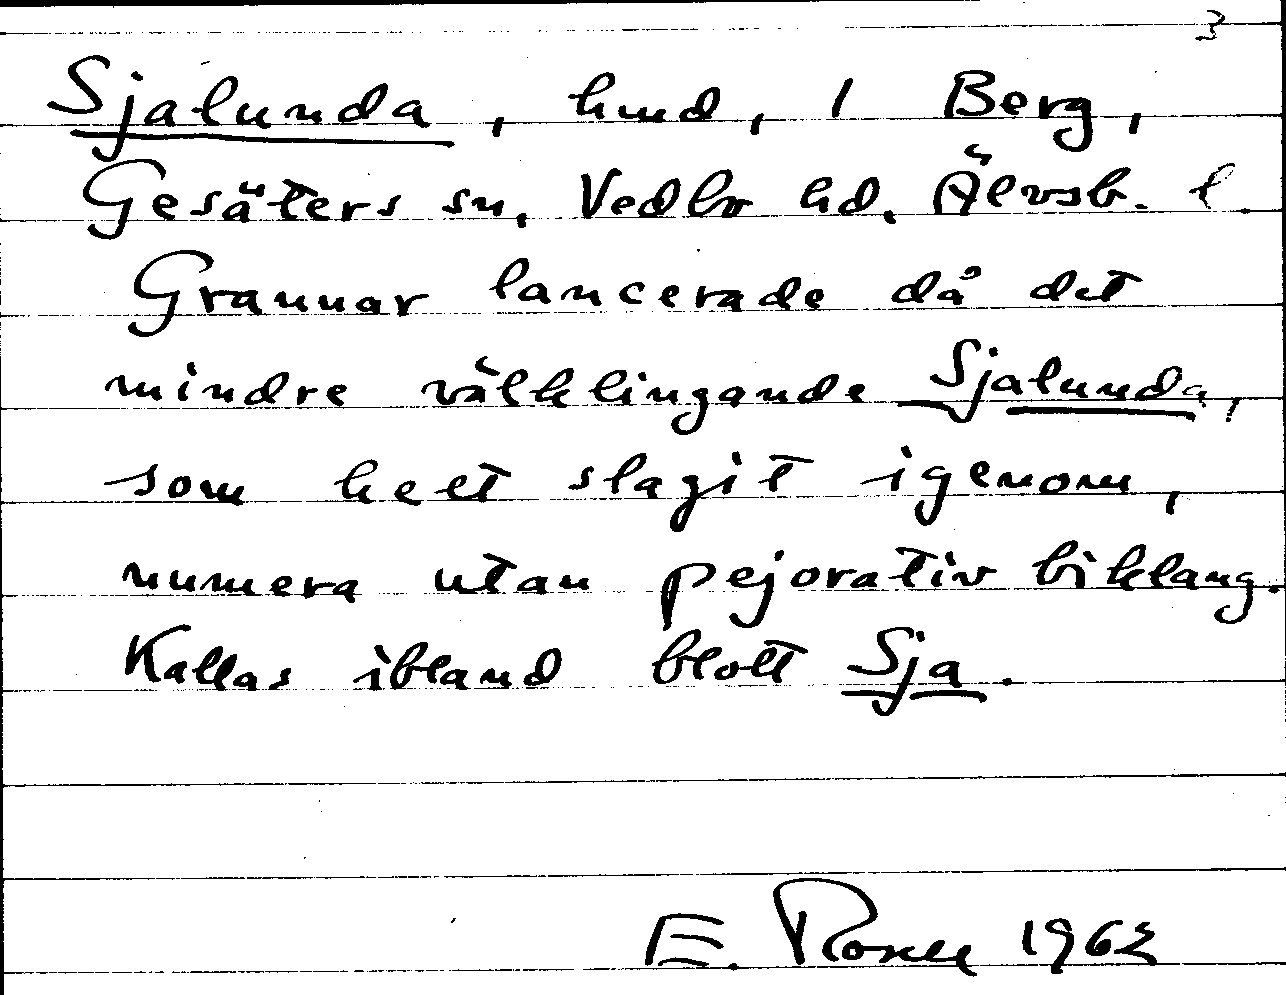 3
Sjalunda, hmd, 1 Berg,
Gesäters sn, Vedbo hd, Älvsb. l.
Grannar lancerade då det
mindre välklingande Sjalunda,
som helt slagit igenom,
numera utan pejorativ biklang.
Kallas ibland blott Sja.
E. Rosell 1962